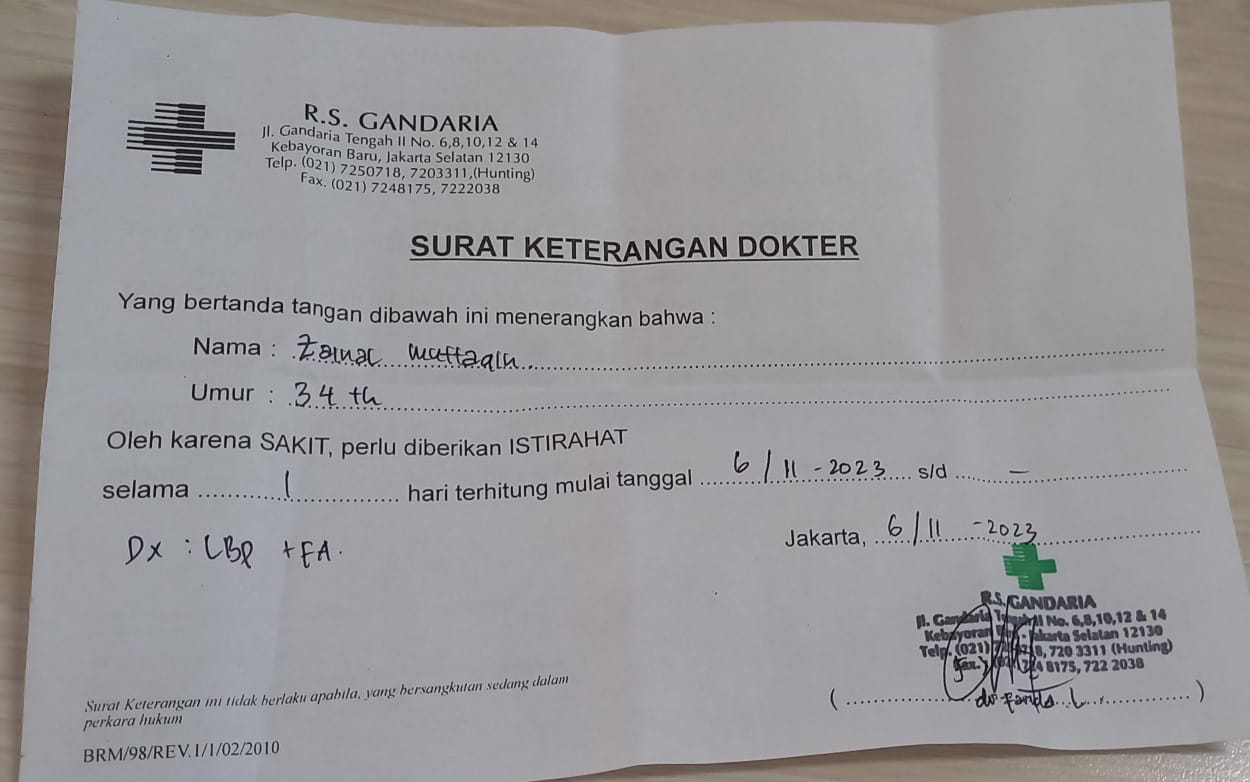 R.S. GANDARIA
Jl. Gandaria Tengah II No. 6,8,10,12 & 14
Kebayoran Baru, Jakarta Selatan 12130
Telp. (021) 7250718, 7203311,(Hunting)
Fax. (021) 7248175, 7222038
SURAT KETERANGAN DOKTER
Yang bertanda tangan dibawah ini menerangkan bahwa :
Nama : Zainal muttaqin
Umur : 34 th
Oleh karena SAKIT, perlu diberikan ISTIRAHAT
selama 1 hari terhitung mulai tanggal 6/11-2023 s/d -
Jakarta, 6/11-2023
Dx : LBP + FA.
R.S. GANDARIA
Jl. Gandaria II No. 6,8,10,12 & 14
Kebayoran Jakarta Selatan 12130
Telp. (021) 720 3311 (Hunting)
Fax. 8175, 722 2038
( dr )
Surat Keterangan ini tidak berlaku apabila, yang bersangkutan sedang dalam
perkara hukum
BRM/98/REV.1/1/02/2010